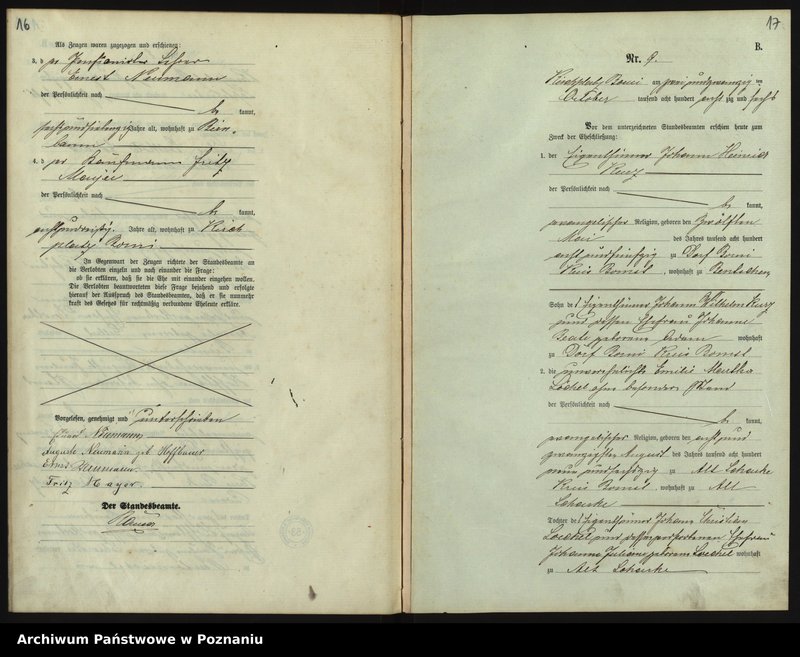 16
Als Zeugen waren zugezogen und erschienen:
3. der Pensionirte Lehrer
Ernest Neumann
der Persönlichkeit nach
be kannt,
sechsundsiebenzig Jahre alt, wohnhaft zu Bien
baum
4. der Kaufmann Fritz
der Persönlichkeit nach
be kannt,
achtunddreißig Jahre alt, wohnhaft zu Kirch
platz Borui
In Gegenwart der Zeugen richtete der Standesbeamte an
die Verlobten einzeln und nach einander die Frage:
ob sie erklären, daß sie die Ehe mit einander eingehen wollen.
Die Verlobten beantworteten diese Frage bejahend und erfolgte
hierauf der Ausspruch des Standesbeamten, daß er sie nunmehr
kraft des Gesetzes für rechtmäßig verbundene Eheleute erkläre.
Vorgelesen, genehmigt und unterschrieben
Neumann
Auguste Neumann geb Hoffbauer
Ernst Neumann
Fritz Mayer
Der Standesbeamte.
17
B.
Nr. 9.
Kirchplatz Borui am zweiundzwanzig ten
October tausend acht hundert acht zig und sechs
Vor dem unterzeichneten Standesbeamten erschien heute zum
Zweck der Eheschließung:
1. der Eigenthümer Johann Heinrich
Kurz
der Persönlichkeit nach
be kannt,
evangelischer Religion, geboren den zwölften
Mai des Jahres tausend acht hundert
achtundfünfzig zu Dorf Borui
Kreis Bomst, wohnhaft zu Bentschen
Sohn des Eigenthümer Johann Wilhelm Kurz
und dessen Ehefrau Johanne
Beate geborenen Adam wohnhaft
zu Dorf Borui Kreis Bomst
2. die unverehelichte Emilie Martha
Löchel ohne besonderen Stand
der Persönlichkeit nach
be kannt,
evangelischer Religion, geboren den achtund
zwanzigsten August des Jahres tausend acht hundert
neunundsechzig zu Alt
Kreis Bomst, wohnhaft zu Alt
Tochter des Eigenthümer Johann Christian
Loechel und dessen verstorbenen Ehefrau
Johanna Juliane geborenen Loechel wohnhaft
zu Alt
Archiwum Państwowe w Poznaniu